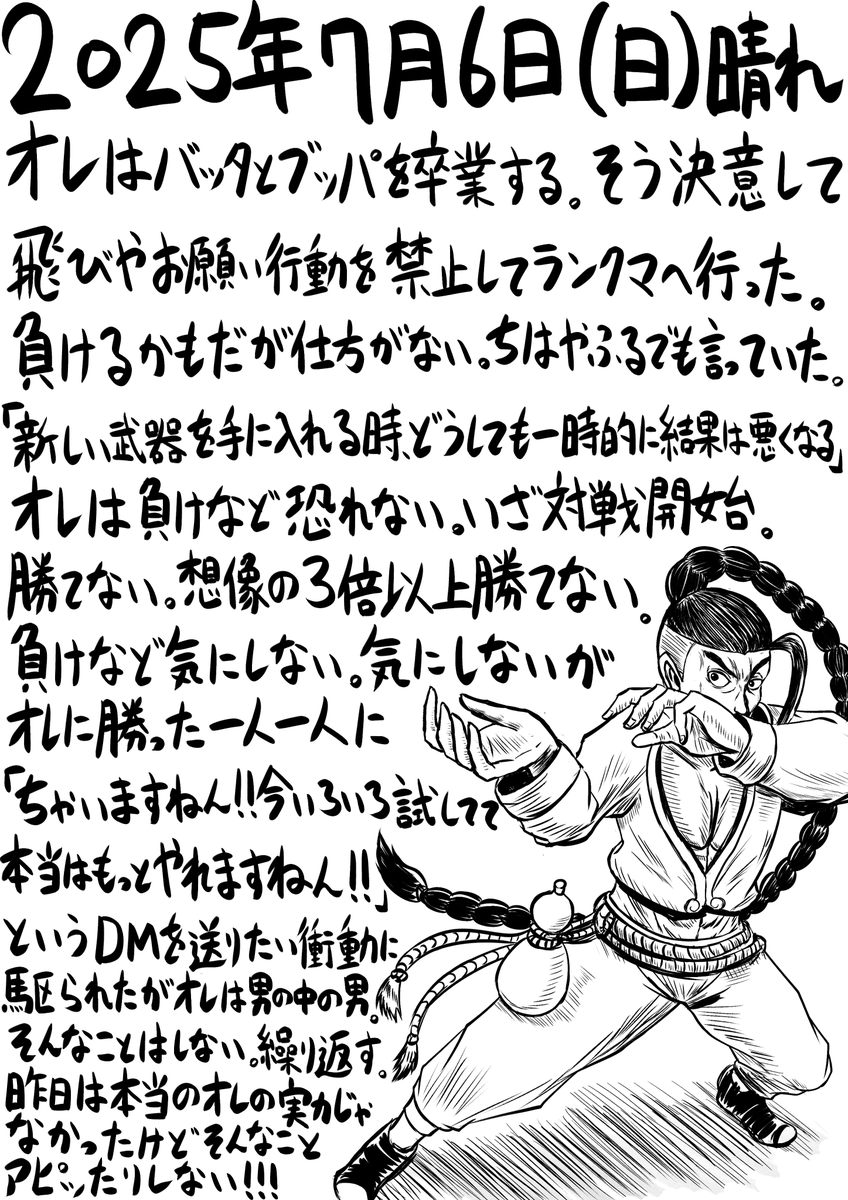 2025年7月6日(日)晴れ
オレはバッタとブッパを卒業する。そう決意して
飛びやお願い行動を禁止してランクマへ行った。
負けるかもだが仕方がない。ちはやふるでも言っていた。
「新しい武器を手に入れる時、どうしても一時的に結果は悪くなる」
オレは負けなど恐れない。いざ対戦開始。
勝てない。想像の3倍以上勝てない。
負けなど気にしない。気にしないが
オレに勝った一人一人に
「ちゃいますねん!!今いろいろ試してて
本当はもっとやれますねん!!」
というDMを送りたい衝動に
駆られたがオレは男の中の男。
そんなことはしない。繰り返す。
昨日は本当のオレの実力じゃ
なかったけどそんなこと
アピッたりしない!!!